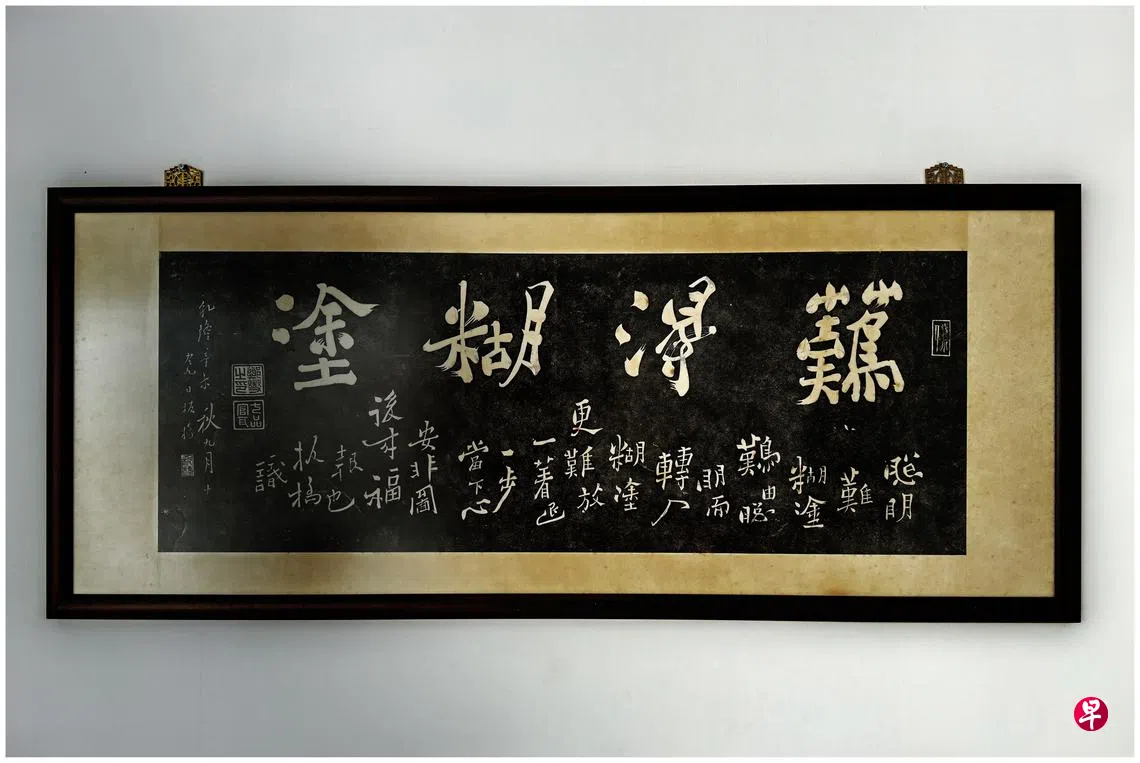 難得糊塗
聰明
難
糊塗
難由聰
明而
轉入
糊塗
更難放
一著退
一步
當下心
安非圖
後來福
報也
板橋
識
乾隆辛未秋九月十
九日板橋
七品官耳
早